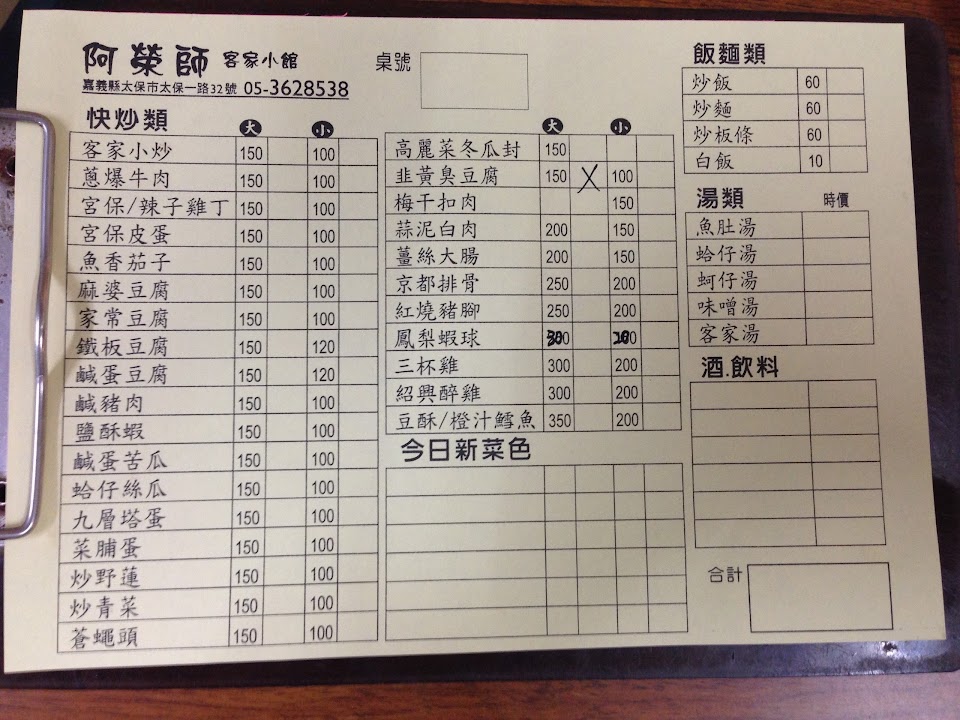 阿榮師 客家小館
嘉義縣太保市太保一路32號 05-3628538
桌號
快炒類 大 小
客家小炒 150 100
蔥爆牛肉 150 100
宮保/辣子雞丁 150 100
宮保皮蛋 150 100
魚香茄子 150 100
麻婆豆腐 150 100
家常豆腐 150 100
鐵板豆腐 150 120
鹹蛋豆腐 150 120
鹹豬肉 150 100
鹽酥蝦 150 100
鹹蛋苦瓜 150 100
蛤仔絲瓜 150 100
九層塔蛋 150 100
菜脯蛋 150 100
炒野蓮 150 100
炒青菜 150 100
蒼蠅頭 150 100
大 小
高麗菜冬瓜封 150
韭黃臭豆腐 150 X 100
梅干扣肉 150
蒜泥白肉 200 150
薑絲大腸 200 150
京都排骨 250 200
紅燒豬腳 250 200
鳳梨蝦球
三杯雞 300 200
紹興醉雞 300 200
豆酥/橙汁鱈魚 350 200
今日新菜色
飯麵類
炒飯 60
炒麵 60
炒板條 60
白飯 10
湯類 時價
魚肚湯
蛤仔湯
蚵仔湯
味噌湯
客家湯
酒.飲料
合計